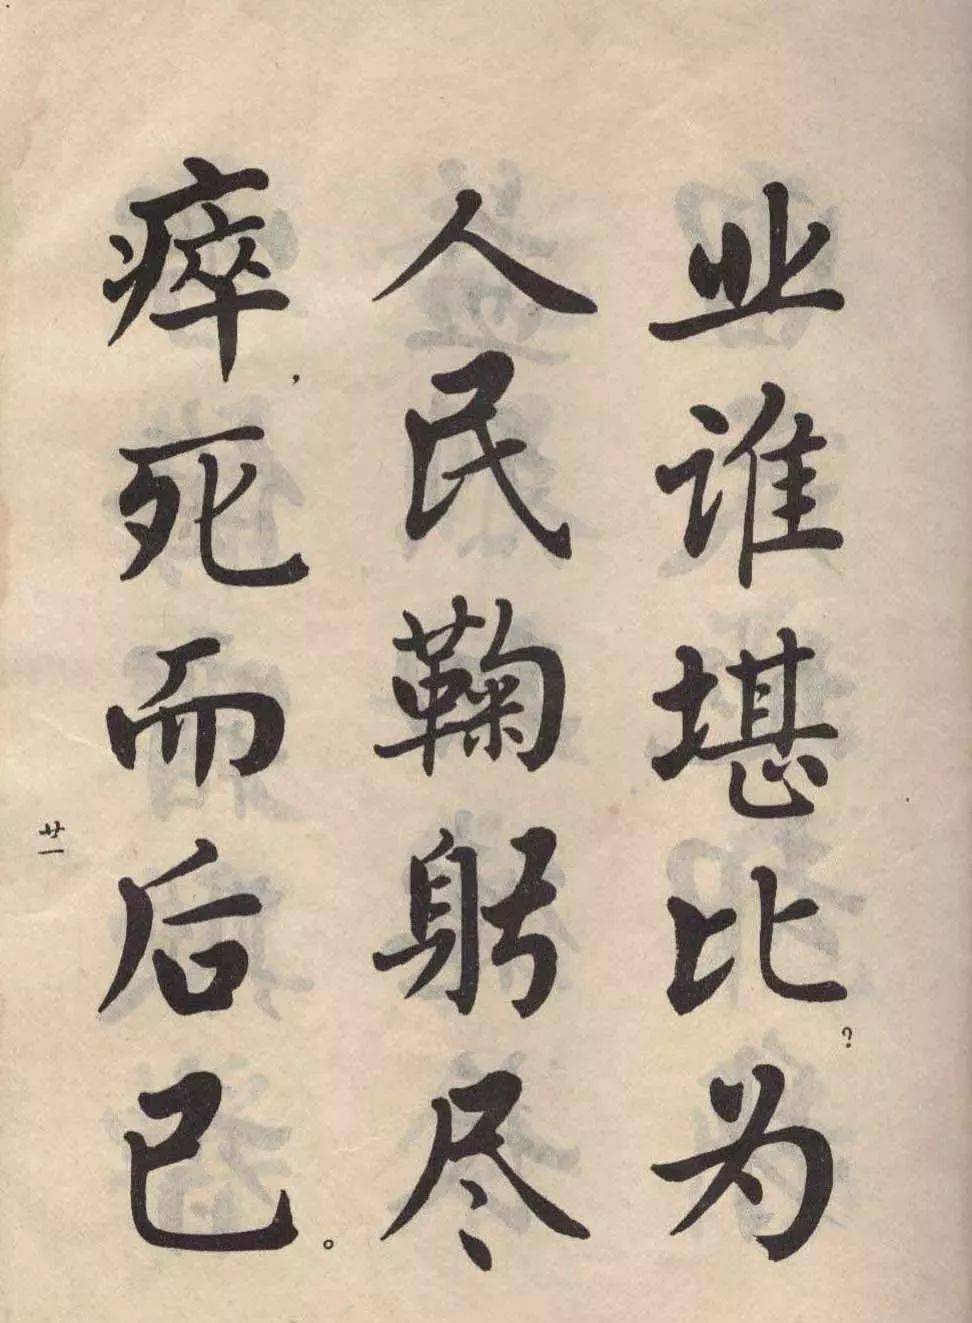 业谁堪比?为
人民鞠躬尽
瘁,死而后已。
廿一